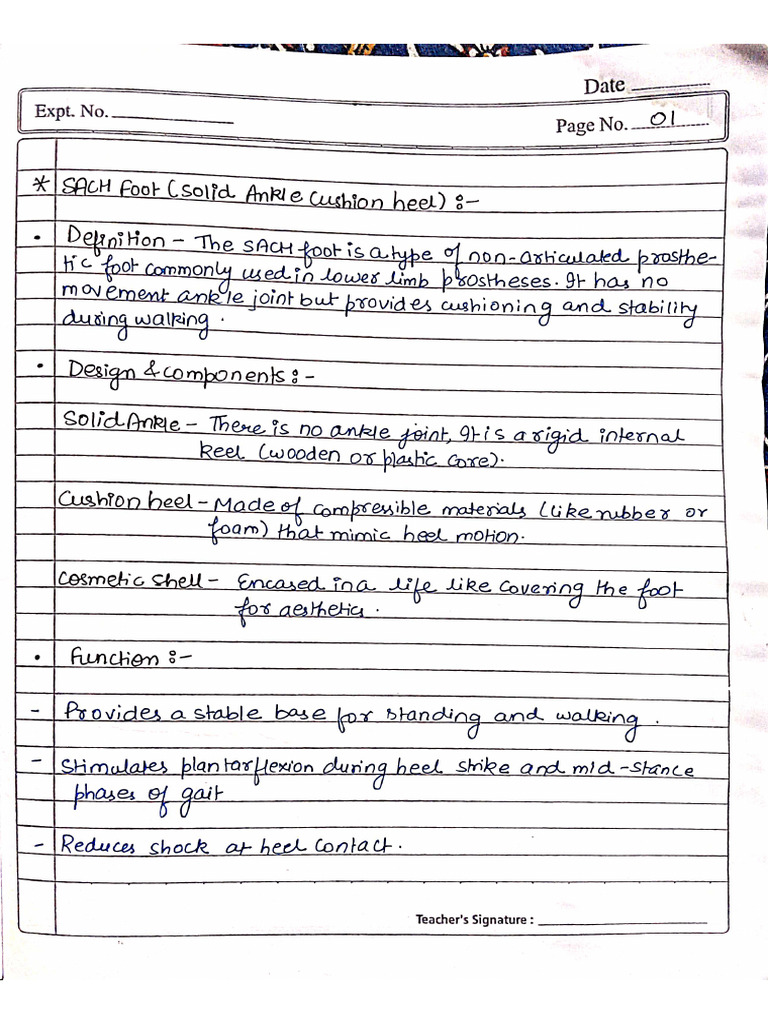 Date
Expt. No.
Page No. 01
* SACH Foot (Solid Ankle Cushion heel) :-
• Definition - The SACH foot is a type of non-articulated prosthe-
tic foot commonly used in lower limb prostheses. It has no
movement ankle joint but provides cushioning and stability
during walking.
• Design & components :-
Solid Ankle - There is no ankle joint, It is a rigid internal
keel (wooden or plastic core).
Cushion heel - Made of compressible materials (like rubber or
foam) that mimic heel motion.
Cosmetic shell - Encased in a life like covering the foot
for aesthetics.
• Function :-
- Provides a stable base for standing and walking.
- Stimulates plantarflexion during heel strike and mid-stance
phases of gait
- Reduces shock at heel contact.
Teacher's Signature :